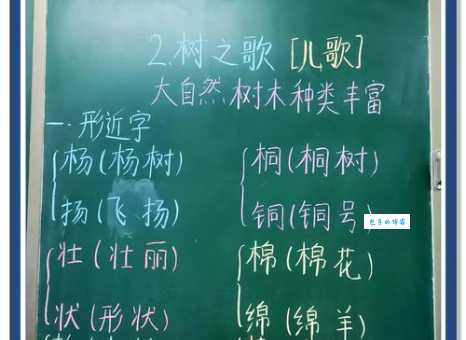 2.树之歌[儿歌]
大自然树木种类丰富
一.形近字
杨(杨树) 桐(桐树)
扬(飞扬) 铜(铜号)
壮(壮丽) 棉(棉花)
状(形状) 绵(绵羊)